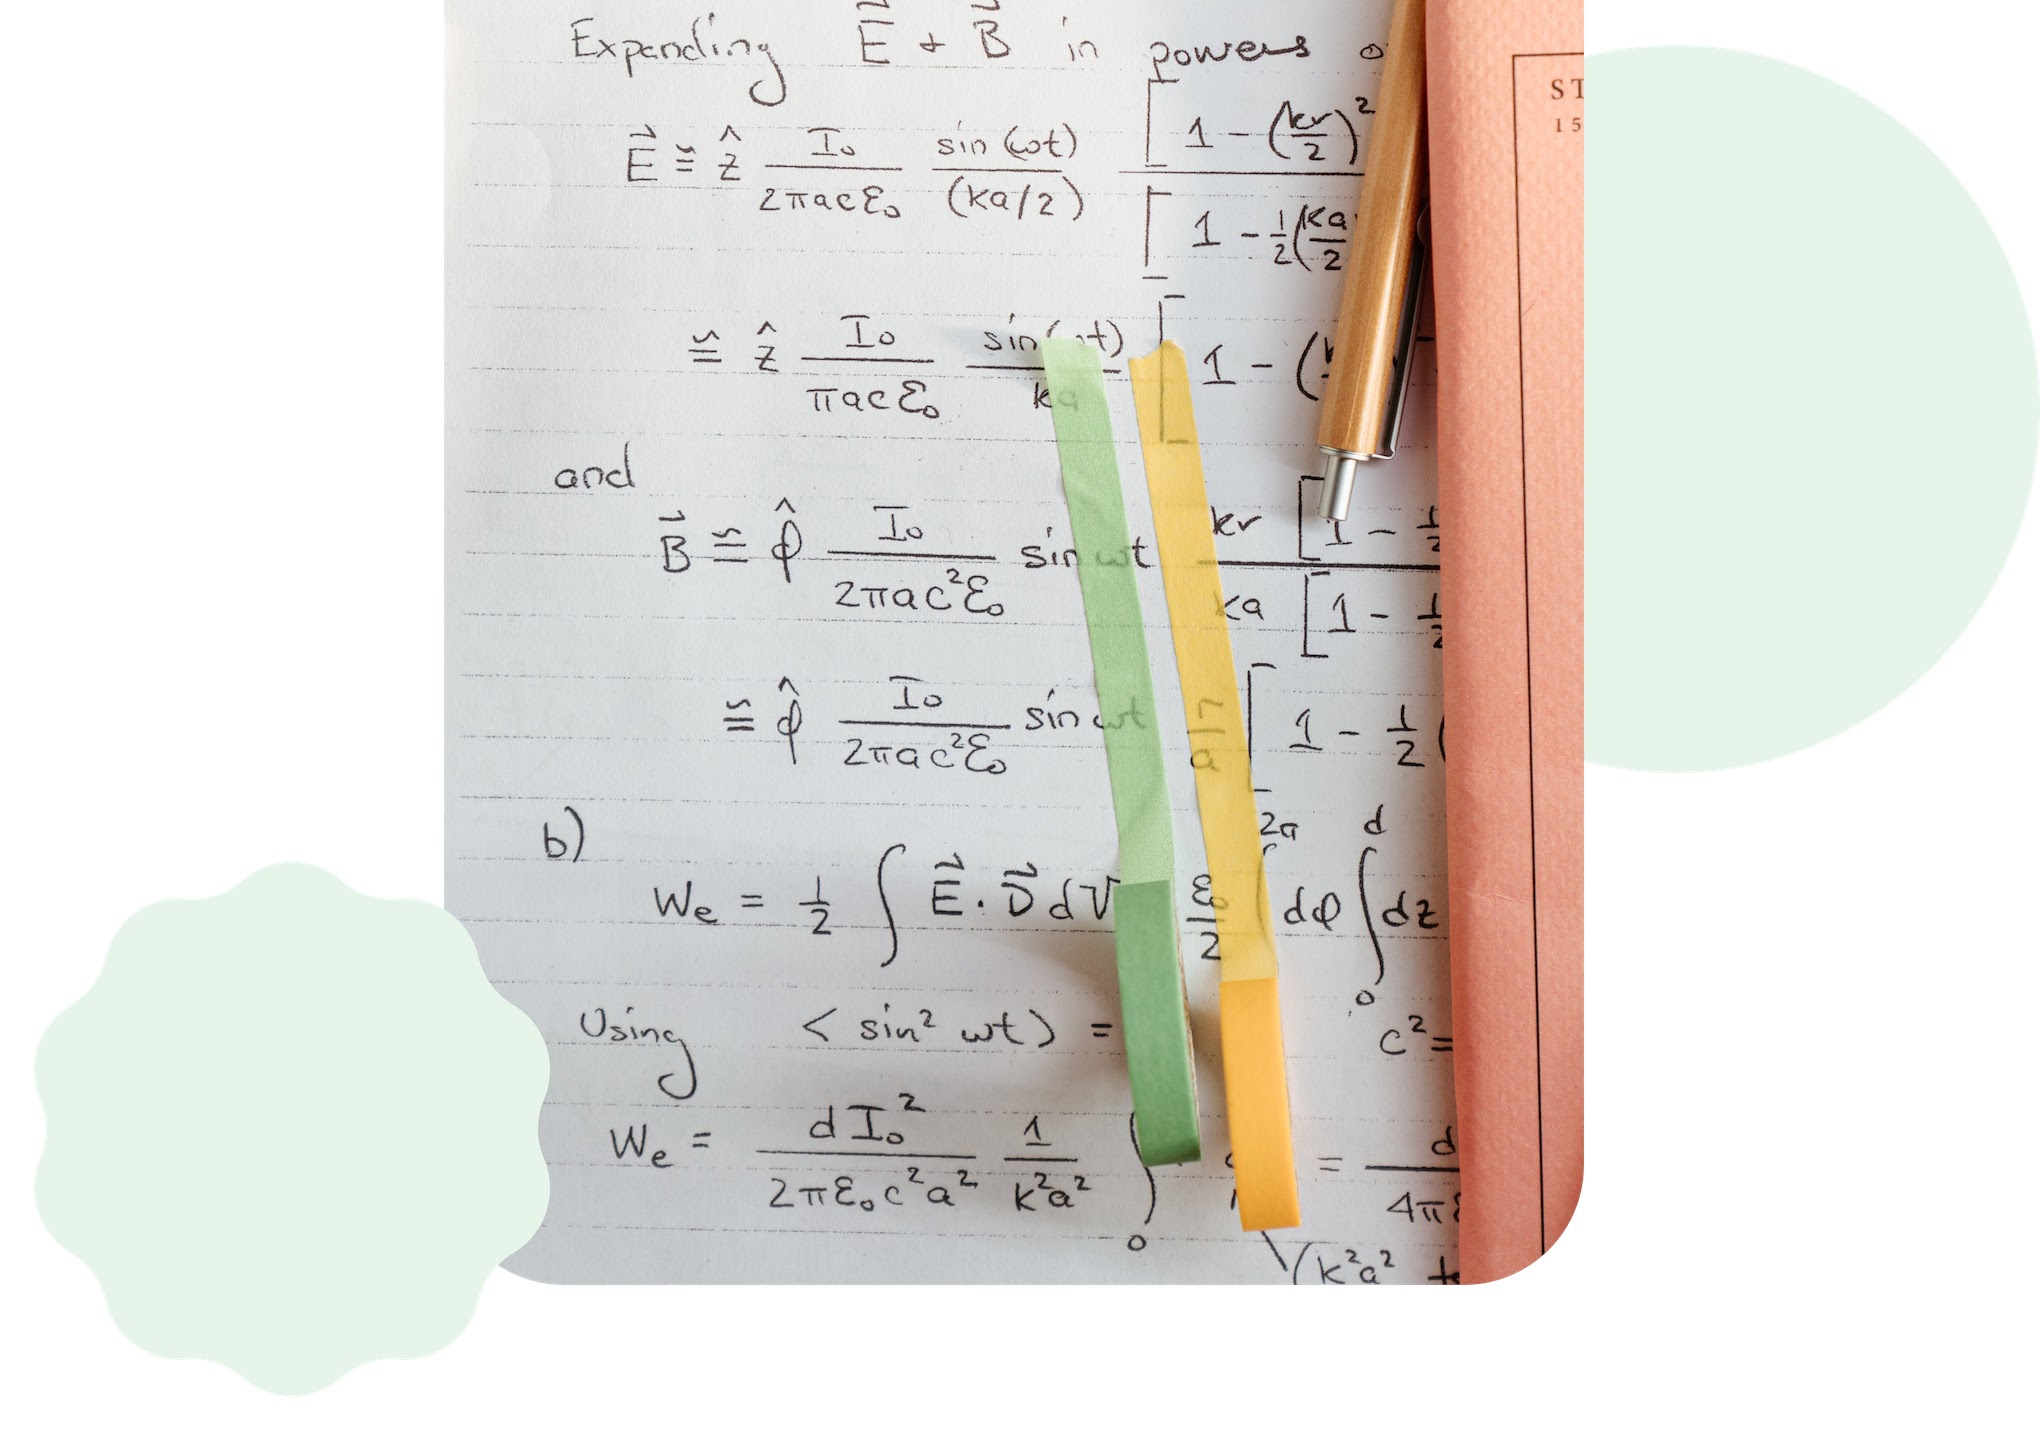 Expanding E⃗ + B⃗ in powers
E⃗ ≅ ẑ I₀/(2πacε₀) sin(ωt)/(ka/2) [1 - (kr/2)² / [1 - ½(ka/2
≅ ẑ I₀/(πacε₀) sin(ωt)/ka [1 - (
and
B⃗ ≅ φ̂ I₀/(2πac²ε₀) sin ωt kr [1 - ½ / ka [1 - ½
≅ φ̂ I₀/(2πac²ε₀) sin ωt r/a [1 - ½ (
b)
Wₑ = ½ ∫ E⃗ · D⃗ dV ε₀/2 ∫ 2π dφ ∫₀ᵈ dz
Using < sin² ωt > = c² =
Wₑ = d I₀²/(2πε₀c²a²) 1/(k²a²) ∫₀ = d/(4πε
(k²a²
ST
15